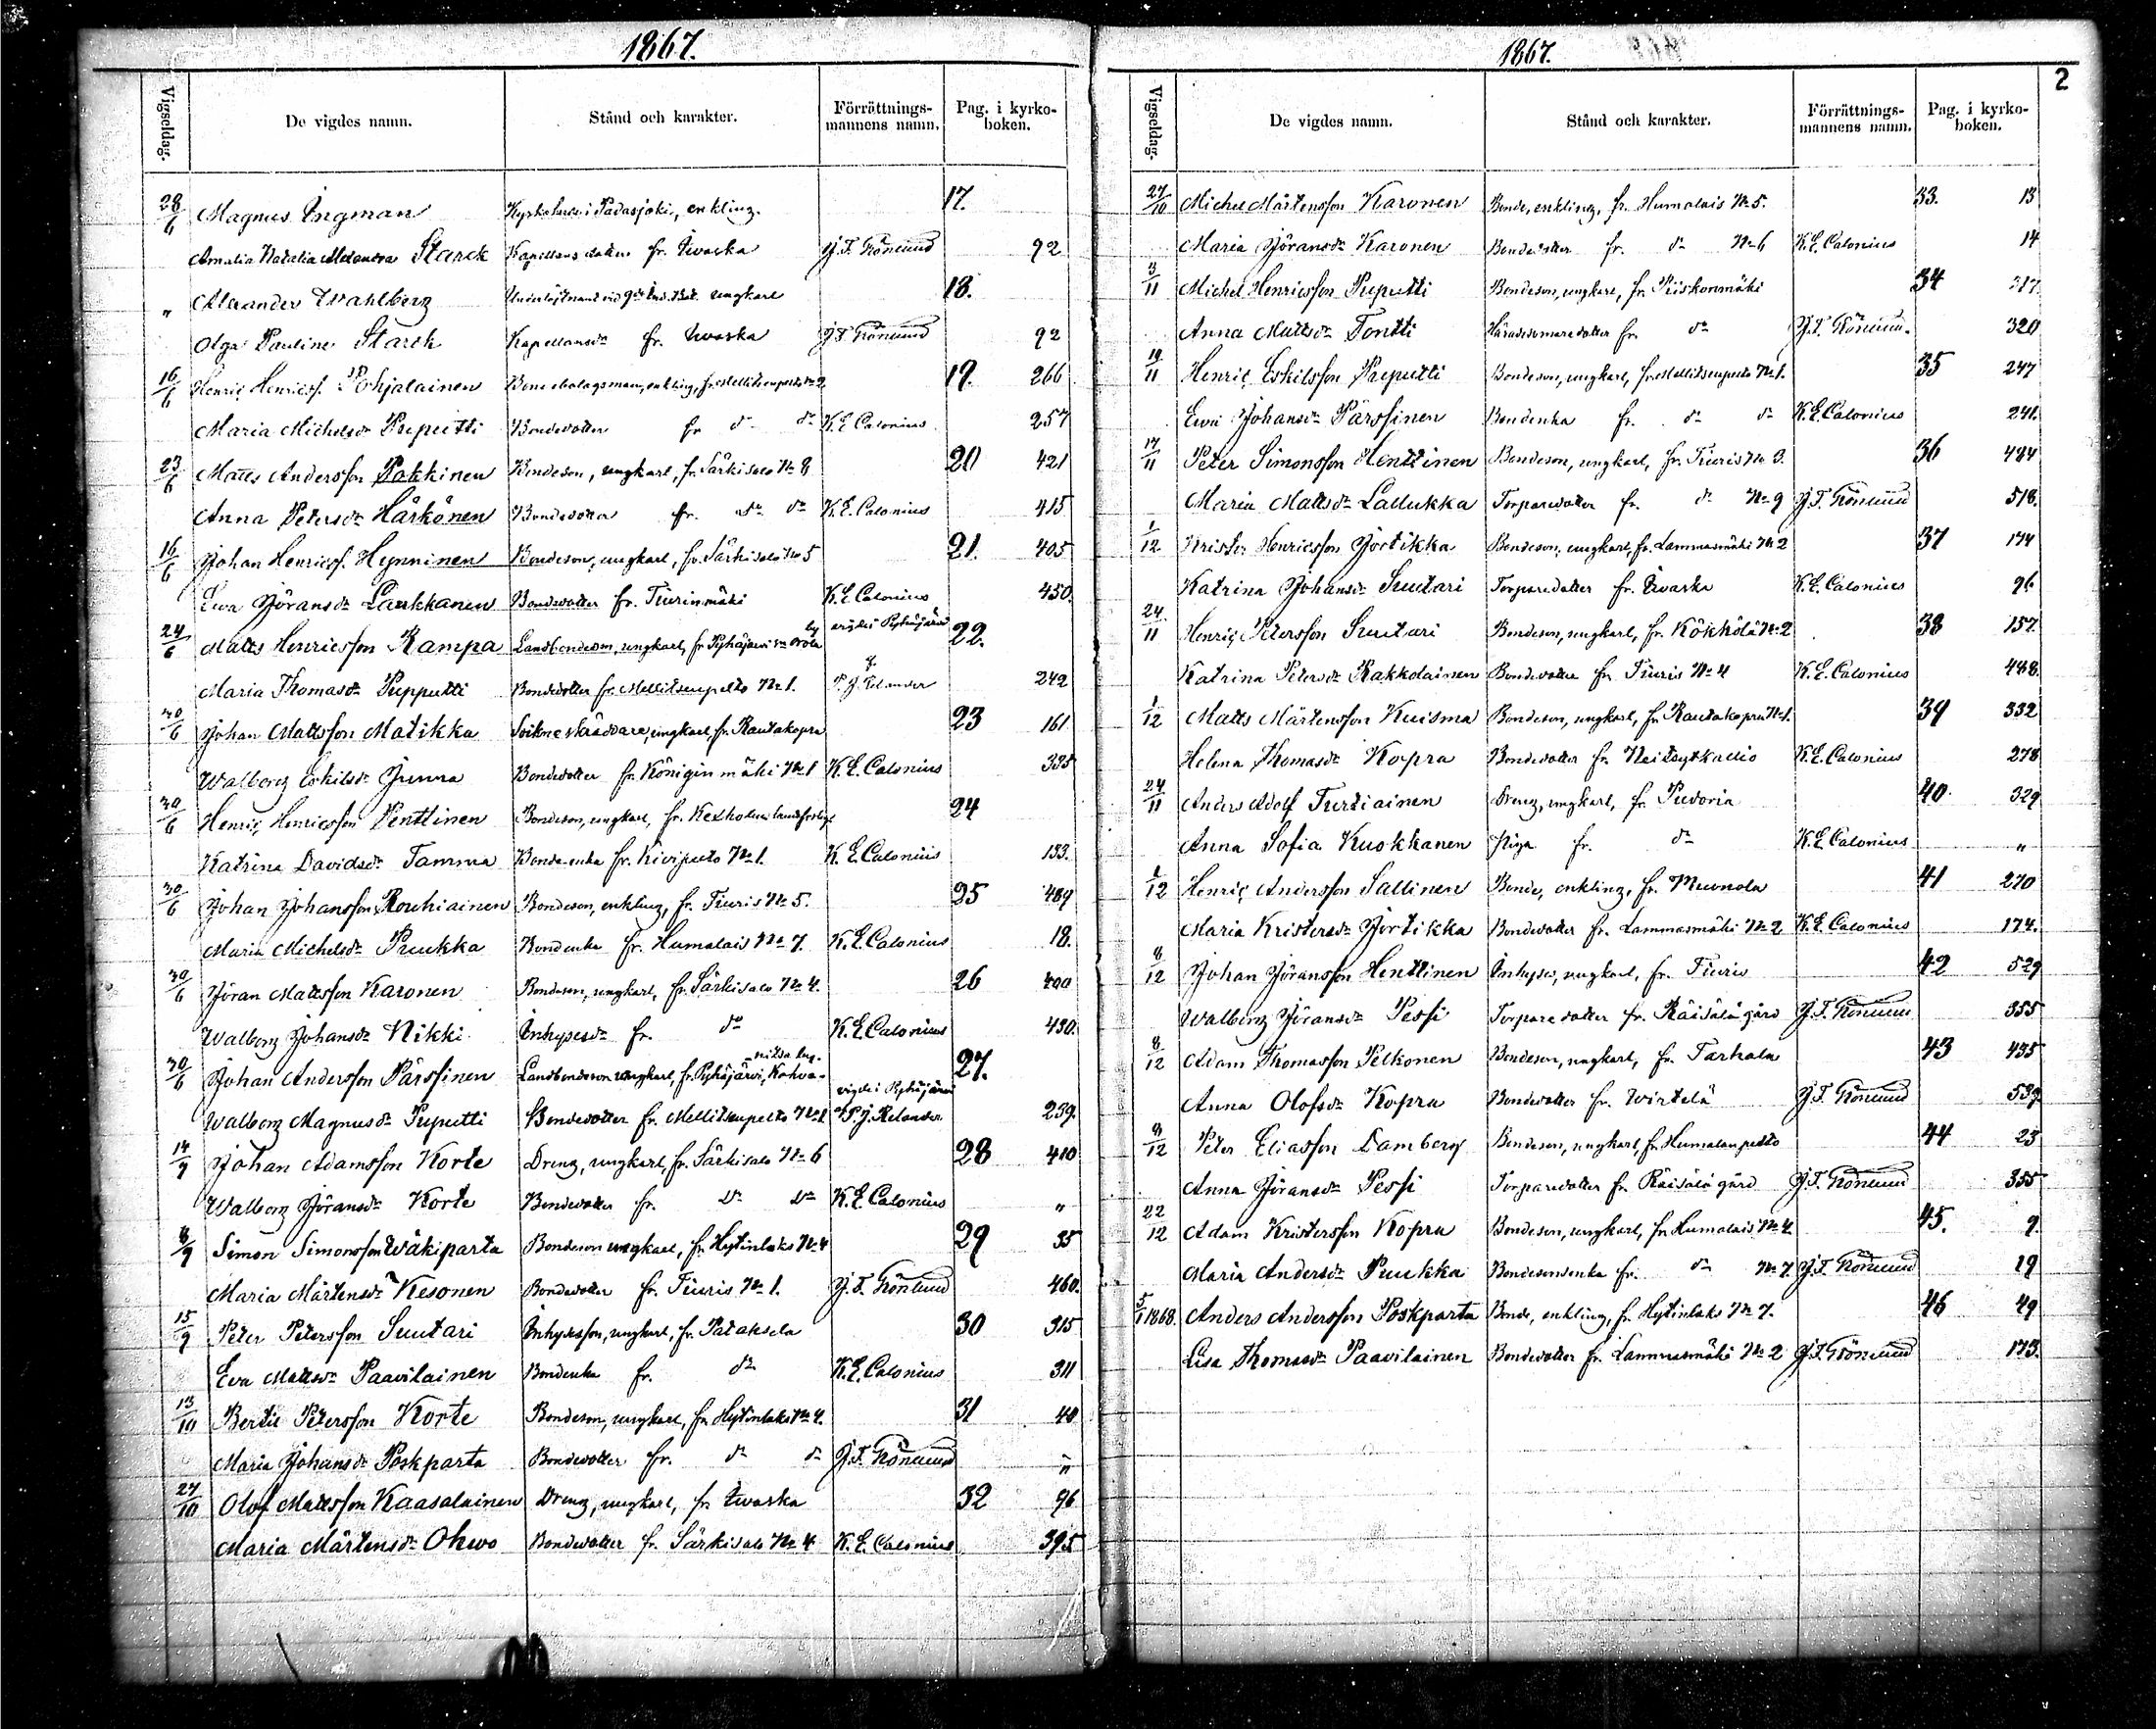 1867.
Vigseldag. De vigdes namn. Stånd och karakter. Förrättnings-mannens namn. Pag. i kyrko-boken.
28/6 Magnus Ingman Kyrkoherde i Padasjoki, enkling. 17.
Amalia Natalia Alexandra Starck Kapellans dotter fr. Ivaska J. F. Grönlund 92
" Alexander Wahlberg ungkarl 18.
Olga Pauline Starck Kapellansdr fr. Ivaska J. F. Grönlund 92
16/6 Henric Henricsf. Pohjalainen Bonebolagsman, enkling, fr. Mellitsenpelto No 2 19. 266
Maria Michelsdr Puputti Bondedotter fr do do K. E. Calonius 257
23/6 Matts Andersson Pakkinen Bondeson, ungkarl, fr. Särkisalo No 8 20 421
Anna Petersdr Härkönen Bondedotter fr. do do K. E. Calonius 415
16/6 Johan Henricsf. Hynninen Bondeson, ungkarl, fr. Särkisalo No 5 21. 405
Ewa Jöransdr Laukkanen Bondedotter fr. Tiurinmäki K. E. Calonius 450.
24/6 Matts Henricsson Rampa Landbondeson, ungkarl, fr Pyhäjärvi by vigde i Pyhäjärvi 22.
Maria Thomasdr Pupputti Bondedotter fr. Mellitsenpelto No 1. af P. J. Relander 242
30/6 Johan Mattsson Matikka Sockneskräddare, ungkarl, fr. Rautakopra 23 161.
Walborg Eskilsdr Junna Bondedotter fr. Königinmäki No 1 K. E. Calonius 335
30/6 Henric Henricsson Penttinen Bondeson, ungkarl, fr. Kexholms landsförs. 24
Katrina Davidsdr Tamma Bonde-enka fr. Kivipelto No 1. K. E. Calonius 133.
30/6 Johan Johansson Rouhiainen Bondeson, enkling, fr. Tiuris No 5. 25 489
Maria Michelsdr Puukka Bondenka fr. Humalais No 7. K. E. Calonius 18.
30/6 Jöran Mattsson Karonen Bondeson, ungkarl, fr. Särkisalo No 4. 26 400
Walborg Johansdr Nikki Inhysesdr fr. do K. E. Calonius 430.
30/6 Johan Andersson Pärssinen Landbondeson ungkarl, fr. Pyhäjärvi, Kahva-nitsa by. 27.
Walborg Magnusdr Puputti Bondedotter fr. Mellitsenpelto No 1 vigde i Pyhäjärvi af P. J. Relander 239.
14/9 Johan Adamsson Korte Dreng, ungkarl, fr. Särkisalo No 6 28 410
Walborg Jöransdr Korte Bondedotter fr. do do K. E. Calonius "
8/9 Simon Simonsson Wäkiparta Bondeson ungkarl, fr. Hytinlaks No 4 29 35
Maria Mårtensdr Kesonen Bondedotter fr. Tiuris No 1. J. F. Grönlund 460.
15/9 Peter Petersson Suutari Inhysesson, ungkarl, fr. Pataksela 30 315
Eva Mattsdr Paavilainen Bondenka fr. do K. E. Calonius 311
13/10 Bertil Petersson Korte Bondeson, ungkarl, fr. Hytinlaks No 4. 31 40
Maria Johansdr Poskparta Bondedotter fr. do do J. F. Grönlund "
27/10 Olof Mattsson Kaasalainen Dreng, ungkarl, fr. Ivaska 32 96
Maria Mårtensdr Ohwo Bondedotter fr. Särkisalo No 4 K. E. Calonius 395
1867.
2
Vigseldag. De vigdes namn. Stånd och karakter. Förrättnings-mannens namn. Pag. i kyrko-boken.
27/10 Michel Mårtensson Karonen Bonde, enkling, fr. Humalais No 5. 33. 13
Maria Jöransdr Karonen Bondedotter fr. do No 6 K. E. Calonius 14
3/11 Michel Henricsson Puputti Bondeson, ungkarl, fr. Piiskonmäki 34 317.
Anna Mattsdr Tontti Häradsdomaredotter fr. do J. F. Grönlund. 320
10/11 Henric Eskilsson Puputti Bondeson, ungkarl, fr. Mellitsenpelto No 1. 35 247
Ewa Johansdr Pärssinen Bondenka fr. do do K. E. Calonius 241.
17/11 Peter Simonsson Henttinen Bondeson, ungkarl, fr. Tiuris No 3. 36 484
Maria Mattsdr Lallukka Torparedotter fr. do No 9 J. F. Grönlund 518.
1/12 Krister Henricsson Jortikka Bondeson, ungkarl, fr. Lammasmäki No 2 37 174
Katrina Johansdr Suutari Torparedotter fr. Ivaska K. E. Calonius 96
24/11 Henric Petersson Suutari Bondeson, ungkarl, fr. Kökkölä No 2 38 157.
Katrina Petersdr Rakkolainen Bondedotter fr. Tiuris No 4 K. E. Calonius 488.
1/12 Matts Mårtensson Kuisma Bondeson, ungkarl, fr. Rautakopra No 1. 39 332
Helena Thomasdr Kopra Bondedotter fr. Neitsytkallio K. E. Calonius 278
24/11 Anders Adolf Turtiainen Dreng, ungkarl, fr. Pudoria 40. 329
Anna Sofia Kuokkanen Piga fr. do K. E. Calonius "
1/12 Henric Andersson Sallinen Bonde, enkling, fr. Muonola 41 270
Maria Kristersdr Jortikka Bondedotter fr. Lammasmäki No 2 K. E. Calonius 174.
8/12 Johan Jöransson Henttinen Inhyses, ungkarl, fr. Tiuris 42 529
Walborg Jöransdr Pessi Torparedotter fr. Räisälä gård J. F. Grönlund 355
8/12 Adam Thomasson Pelkonen Bondeson, ungkarl, fr. Tarhala 43 435
Anna Olofsdr Kopra Bondedotter fr. Wirtelä J. F. Grönlund 539
8/12 Peter Eliasson Damberg Bondeson, ungkarl, fr. Humalanpelto 44 23
Anna Jöransdr Pessi Torparedotter fr. Räisälä gård J. F. Grönlund 355
22/12 Adam Kristersson Kopra Bondeson, ungkarl, fr. Humalais No 4 45. 9.
Maria Andersdr Puukka Bondesonsenka fr. do No 7 J. F. Grönlund 19
5/1 1868. Anders Andersson Poskparta Bonde, enkling, fr. Hytinlaks No 7. 46 49
Lisa Thomasdr Paavilainen Bondedotter fr. Lammasmäki No 2 J. F. Grönlund 173.